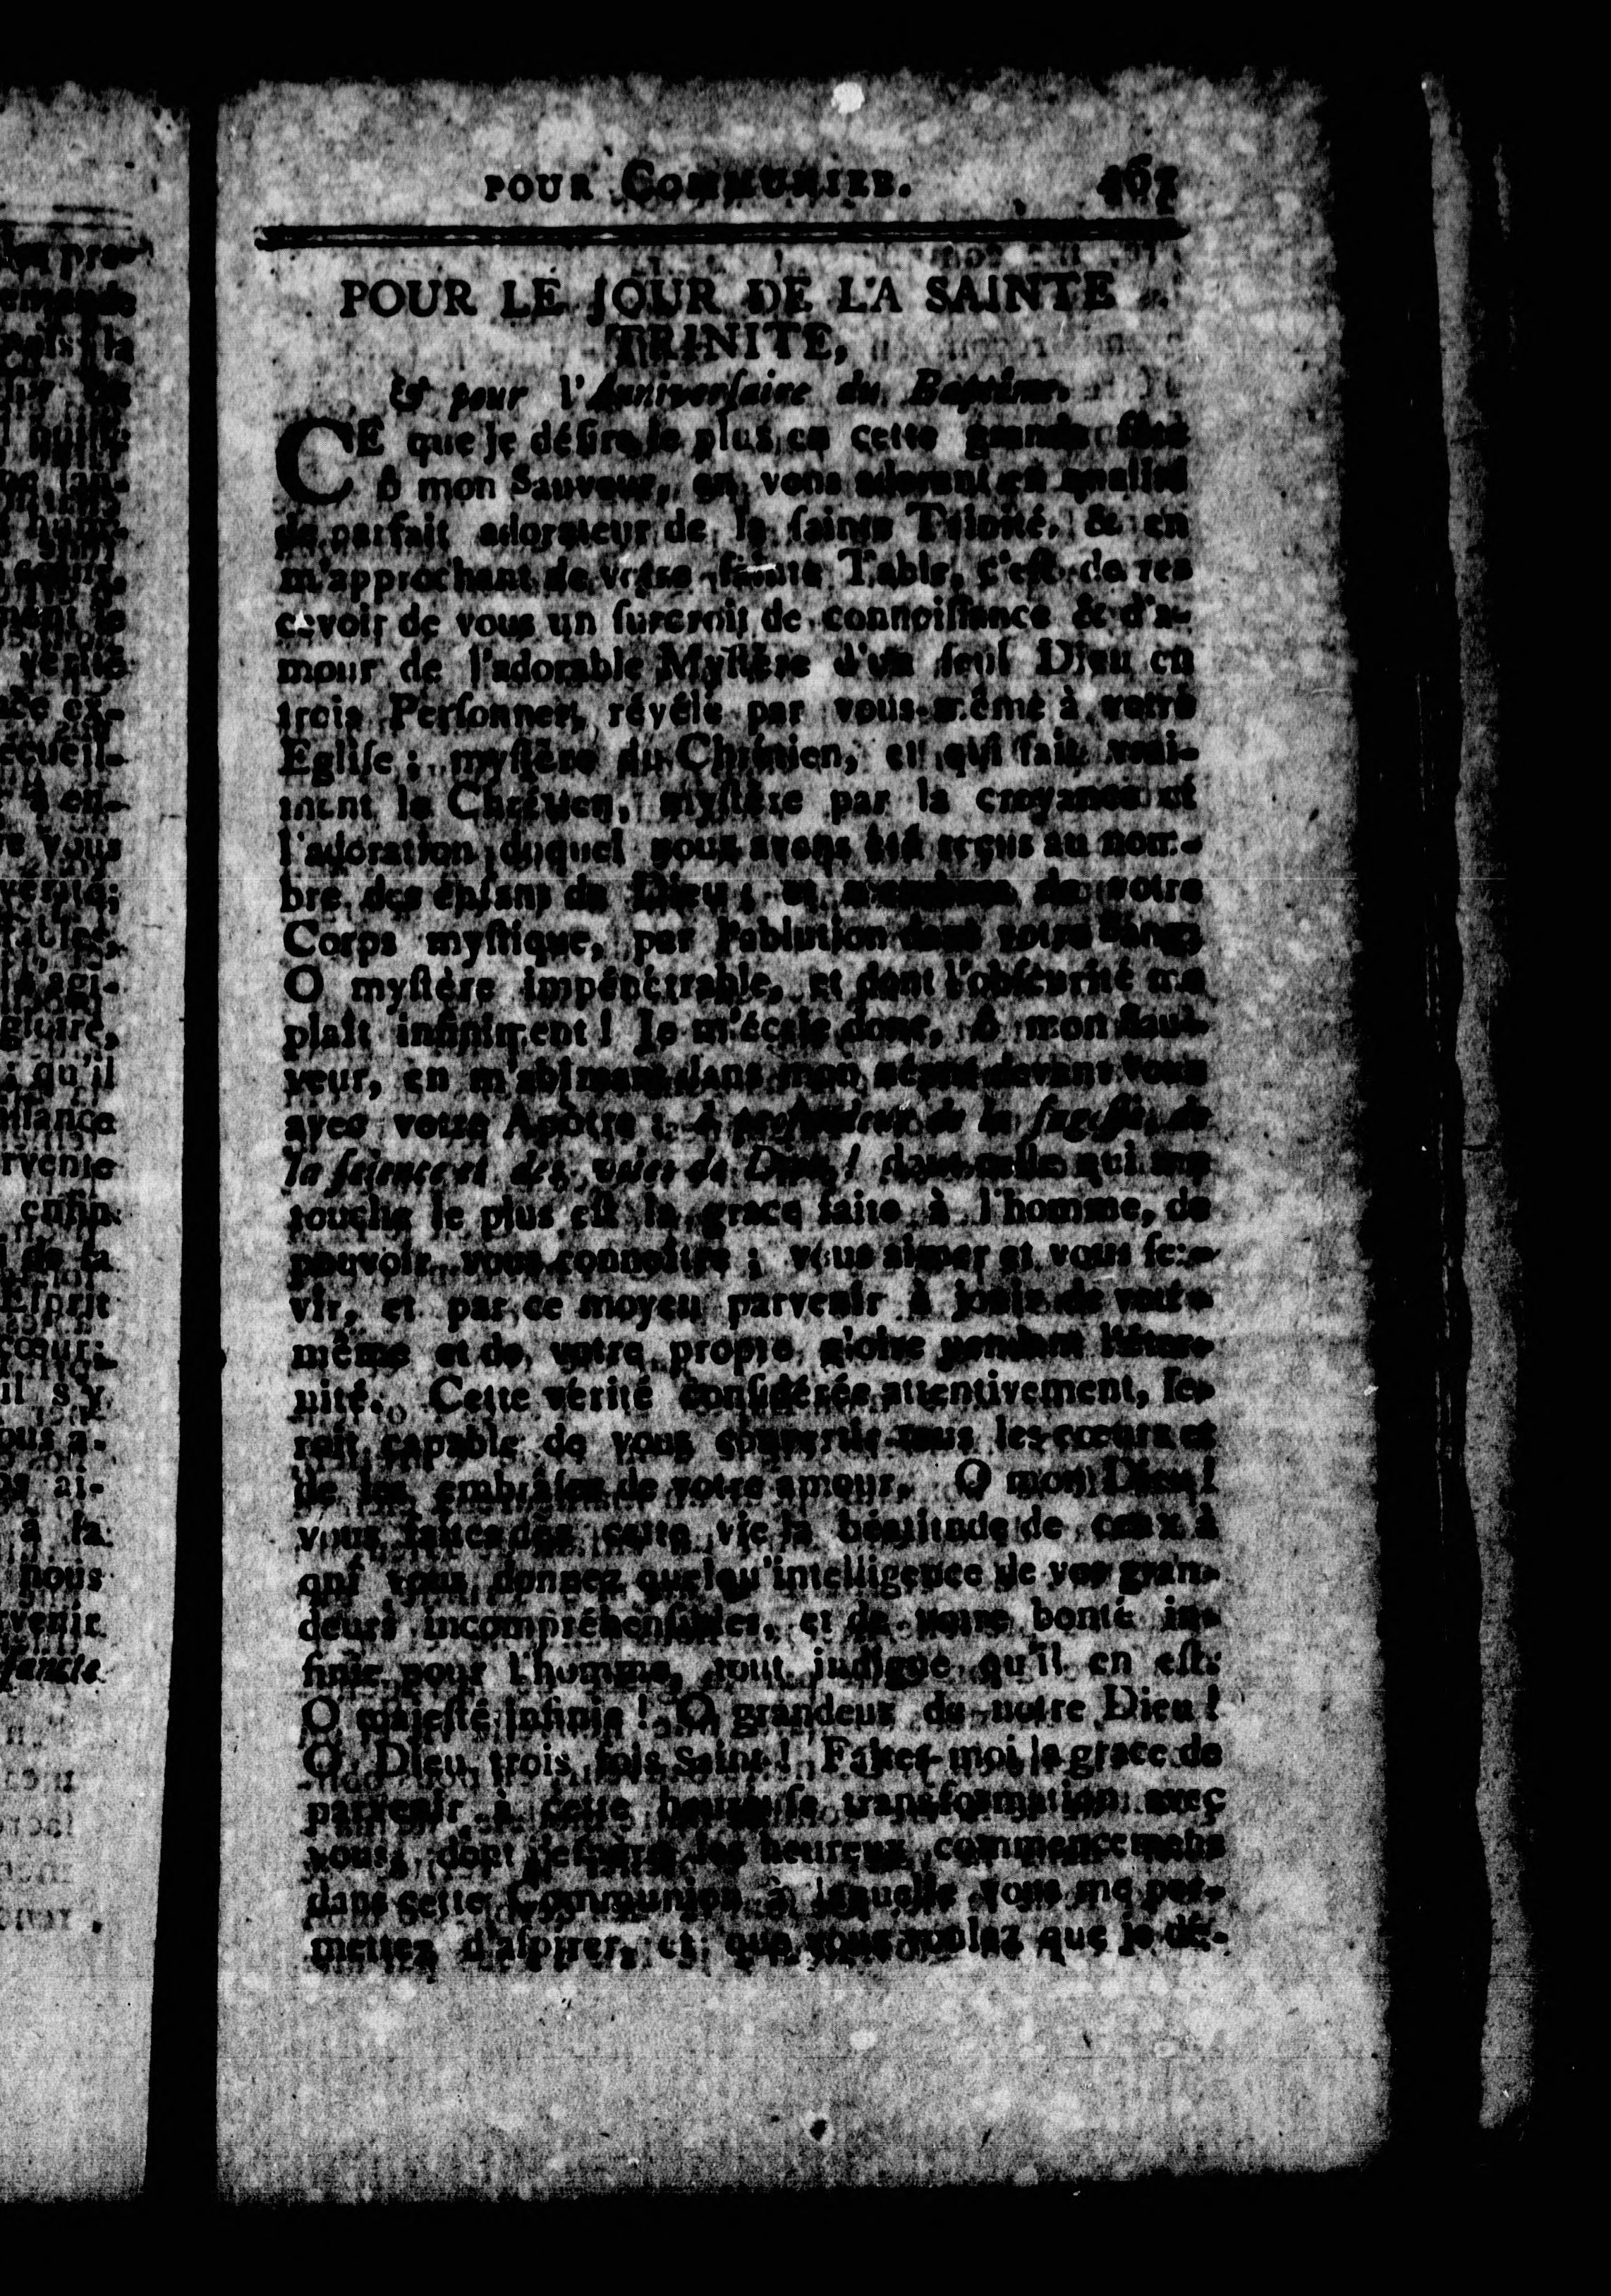 POUR COMMUNIER. 467
POUR LE JOUR DE LA SAINTE
TRINITE,
& pour l'Anniverſaire du Baptême.
CE que je déſire le plus en cette grande fête
ô mon Sauveur, en vous adorant en qualité
de parfait adorateur de la ſainte Trinité, & en
m'approchant de votre ſainte Table, c'eſt de re-
cevoir de vous un ſurcroit de connoiſſance & d'a-
mour de l'adorable Myſtère d'un ſeul Dieu en
trois Perſonnes, révélé par vous-même à votre
Egliſe; myſtère du Chrétien, et qui fait vrai-
ment le Chrétien, myſtère par la croyance et
l'adoration duquel nous avons été reçus au nom-
bre des enfans de Dieu; et membres de votre
Corps myſtique, par l'ablution dans votre Sang.
O myſtère impénétrable, et dont l'obſcurité me
plaît infiniment! Je m'écrie donc, ô mon Sau-
veur, en m'abîmant dans mon néant devant vous
avec votre Apôtre: ô profondeur de la ſageſſe, de
la ſcience et des voies de Dieu! dont celle qui me
touche le plus eſt la grace faite à l'homme, de
pouvoir vous connoître; vous aimer et vous ſer-
vir, et par ce moyen parvenir à jouir de vous-
même et de votre propre gloire pendant l'éter-
nité. Cette vérité conſidérée attentivement, ſe-
roit capable de vous convertir tous les cœurs et
de les embrâſer de votre amour. O mon Dieu!
vous faites dès cette vie la béatitude de ceux à
qui vous donnez quelqu'intelligence de vos gran-
deurs incompréhenſibles, et de votre bonté in-
finie pour l'homme, tout indigne qu'il en eſt.
O majeſté infinie! O grandeur de notre Dieu!
O Dieu trois fois Saint! Faites-moi la grace de
parvenir à cette heureuſe transformation avec
vous, dont j'eſpère les heureux commencemens
dans cette Communion à laquelle vous me per-
mettez d'aſpirer, et que vous voulez que je dé-